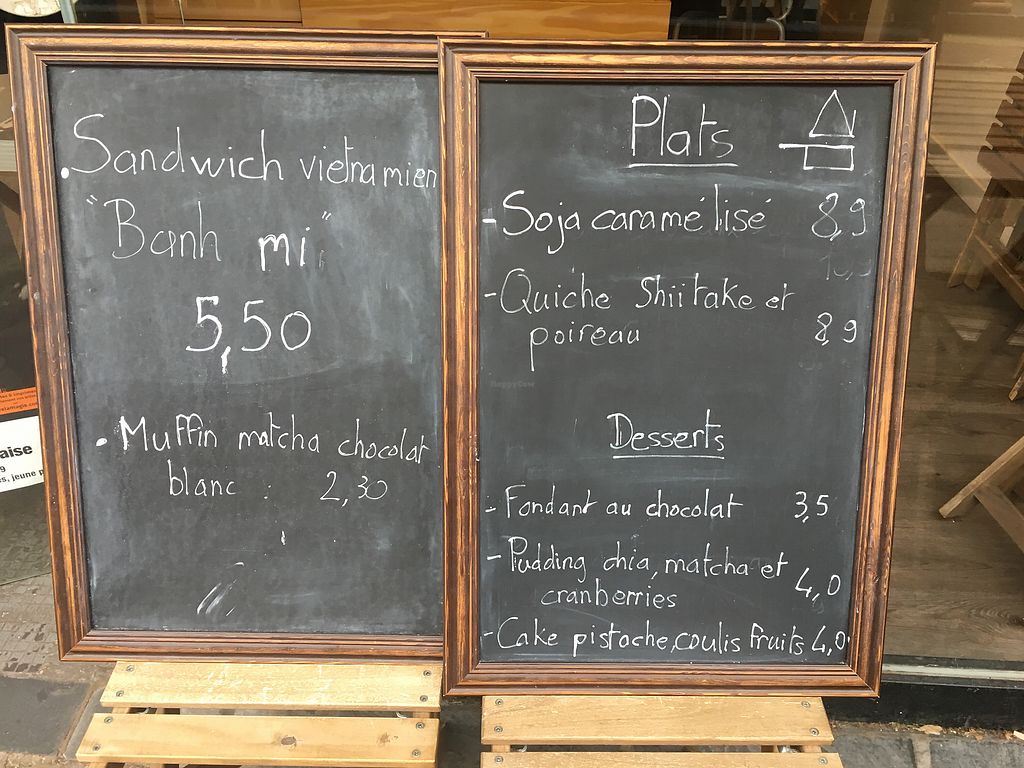 .Sandwich vietnamien
"Banh mi"
5,50
• Muffin matcha chocolat
blanc : 2,30
Plats
- Soja caramélisé 8,9
- Quiche Shiitake et
poireau 8,9
Desserts
- Fondant au chocolat 3,5
- Pudding chia, matcha et
cranberries 4,0
- Cake pistache, coulis fruits 4,0
HappyCow
aise
9
s, jeune p